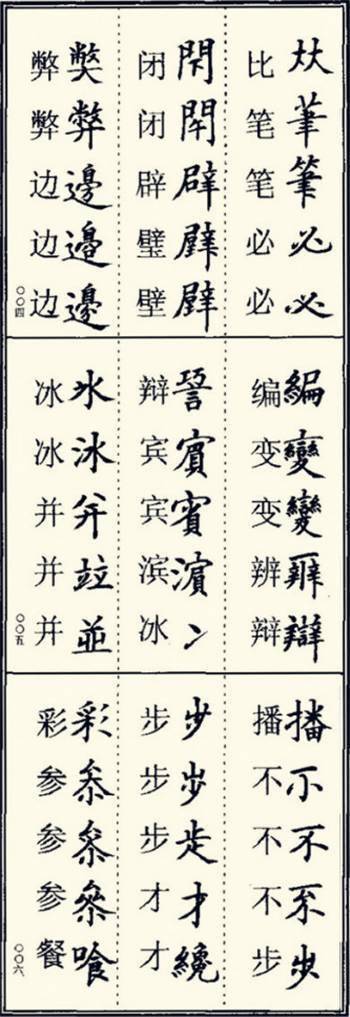 夶茟筆必必
比笔笔必必
閇閉辟
闭闭辟璧壁
獘弊邊邉邊
弊弊边边边
〇〇四
編變變辯
编变变辨辩
賔賓濵冫
辩宾宾滨冰
氷冰并竝並
冰冰并并并
〇〇五
播不不步
播不不不步
步步才纔
步步步才才
彩叅叅參喰
彩参参参餐
〇〇六